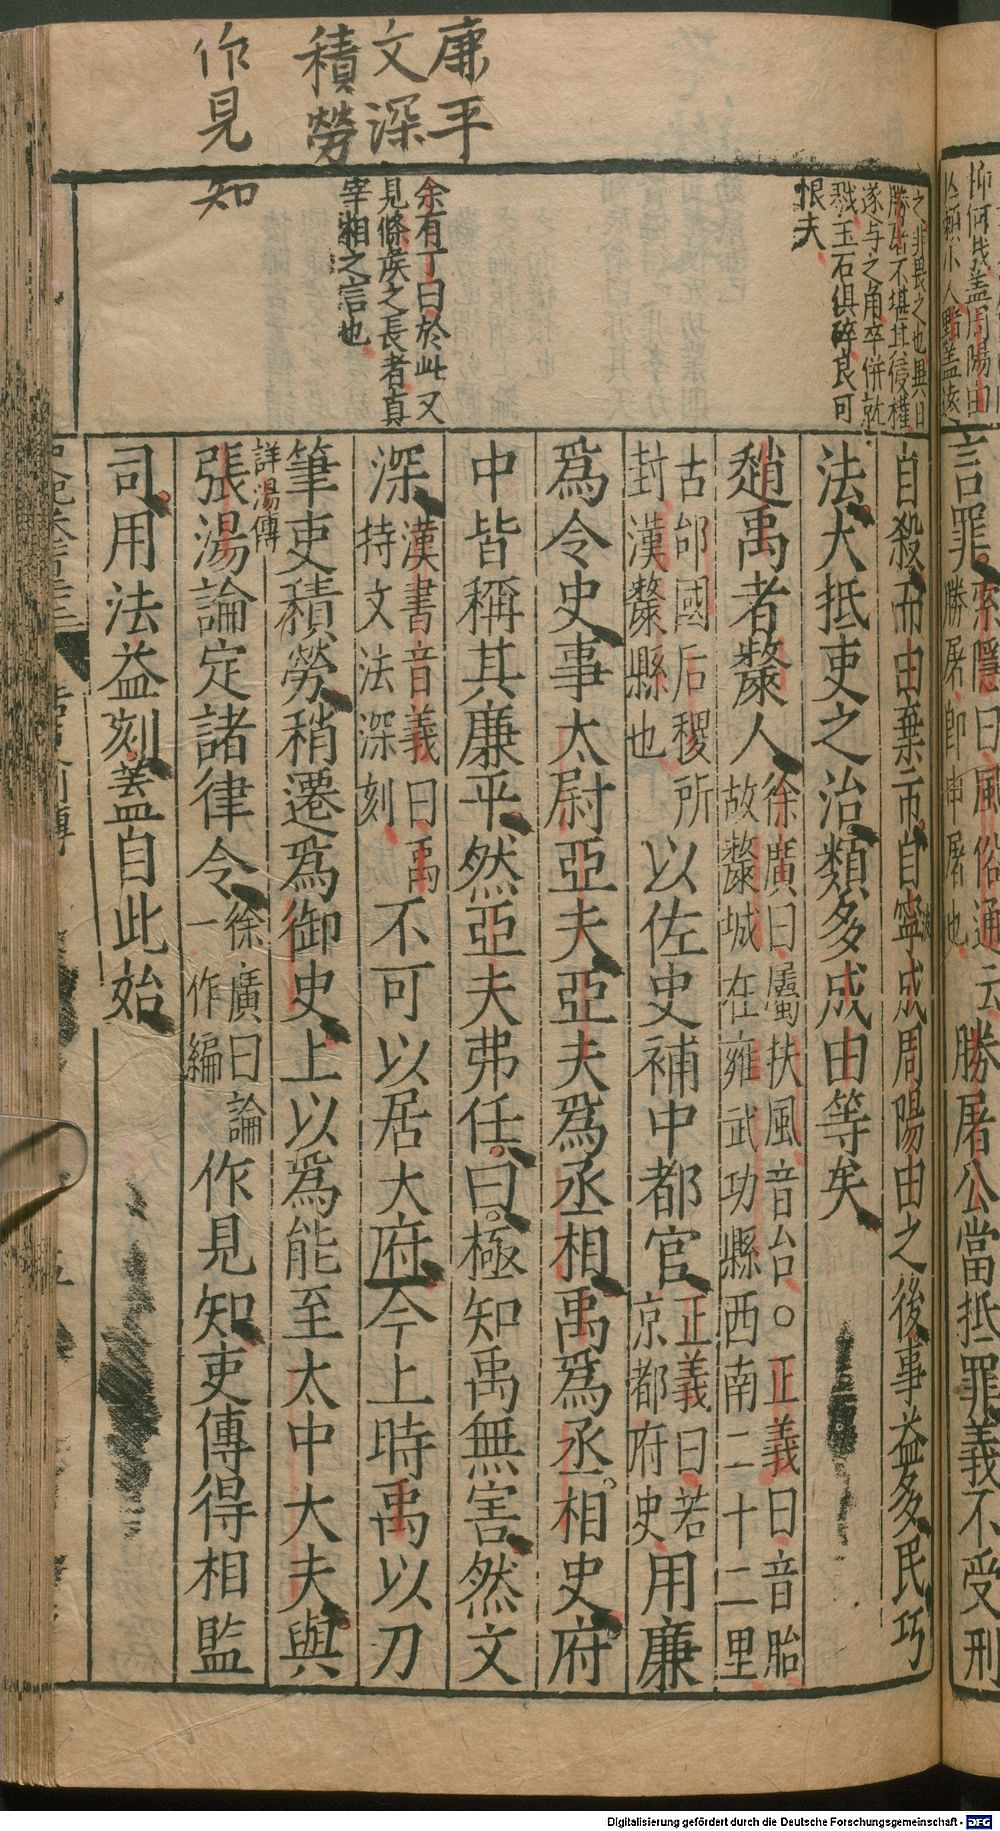 言罪索隱曰風俗通云勝屠公當抵罪義不受刑
勝屠即申屠也
自殺而由棄市自寧成周陽由之後事益多民巧
法大抵吏之治類多成由等矣
趙禹者斄人徐廣曰屬扶風音台○正義曰音胎
故斄城在雍武功縣西南二十二里
古邰國后稷所
封漢斄縣也
以佐史補中都官正義曰若
京都府史
用廉
爲令史事太尉亞夫亞夫爲丞相禹爲丞相史府
中皆稱其廉平然亞夫弗任曰極知禹無害然文
深漢書音義曰禹
持文法深刻
不可以居大府今上時禹以刀
筆吏積勞稍遷爲御史上以爲能至太中大夫與
詳湯傳
張湯論定諸律令徐廣曰論
一作編
作見知吏傳得相監
司用法益刻蓋自此始
抑何哉蓋周陽由
之非畏之也異日
勝屠不堪其侵權
遂与之角卒併就
戮玉石俱碎良可
恨夫
余有丁曰於此又
見條侯之長者真
宰相之言也
廉平
文深
積勞
作見知
Digitalisierung gefördert durch die Deutsche Forschungsgemeinschaft - DFG